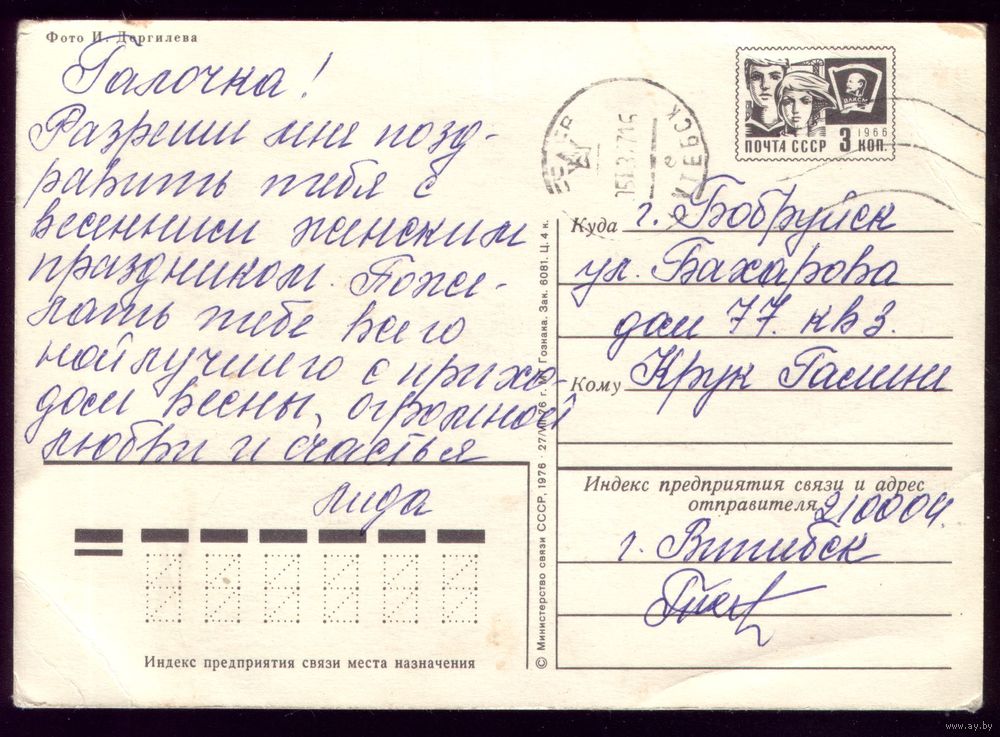 Фото И. Дергилева
Галочка!
Разреши мне позд-
равить тебя с
весенним женским
праздником. Поже-
лать тебе всего
найлучшего с прихо-
дом весны, огромной
любви и счастья
Лида
ПОЧТА СССР 3 КОП.
1966
ВЛКСМ
ВИТЕБСК
Куда г. Бобруйск
ул. Бахарова
дом 77. кв 3.
Кому Крук Галине
Индекс предприятия связи и адрес
отправителя 210004.
г. Витебск
Индекс предприятия связи места назначения
© Министерство связи СССР, 1976 · 27/VII-76 г. МТ Гознака. Зак. 6081. Ц. 4 к.
www.ay.by